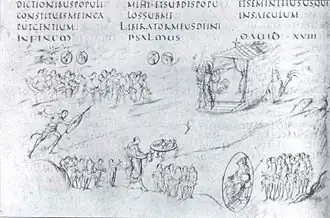 DICTIONIBUSPOPULI
CONSTITUESMEINCA
PUTGENTIUM.
MIHI·ETSUBDISPOPU
LOSSUBME
LIBERATORMEUSDEINI
ETSEMINIEIUSUSQU
INSAECULUM
INFINEM PSALMUS DAUID XVIII